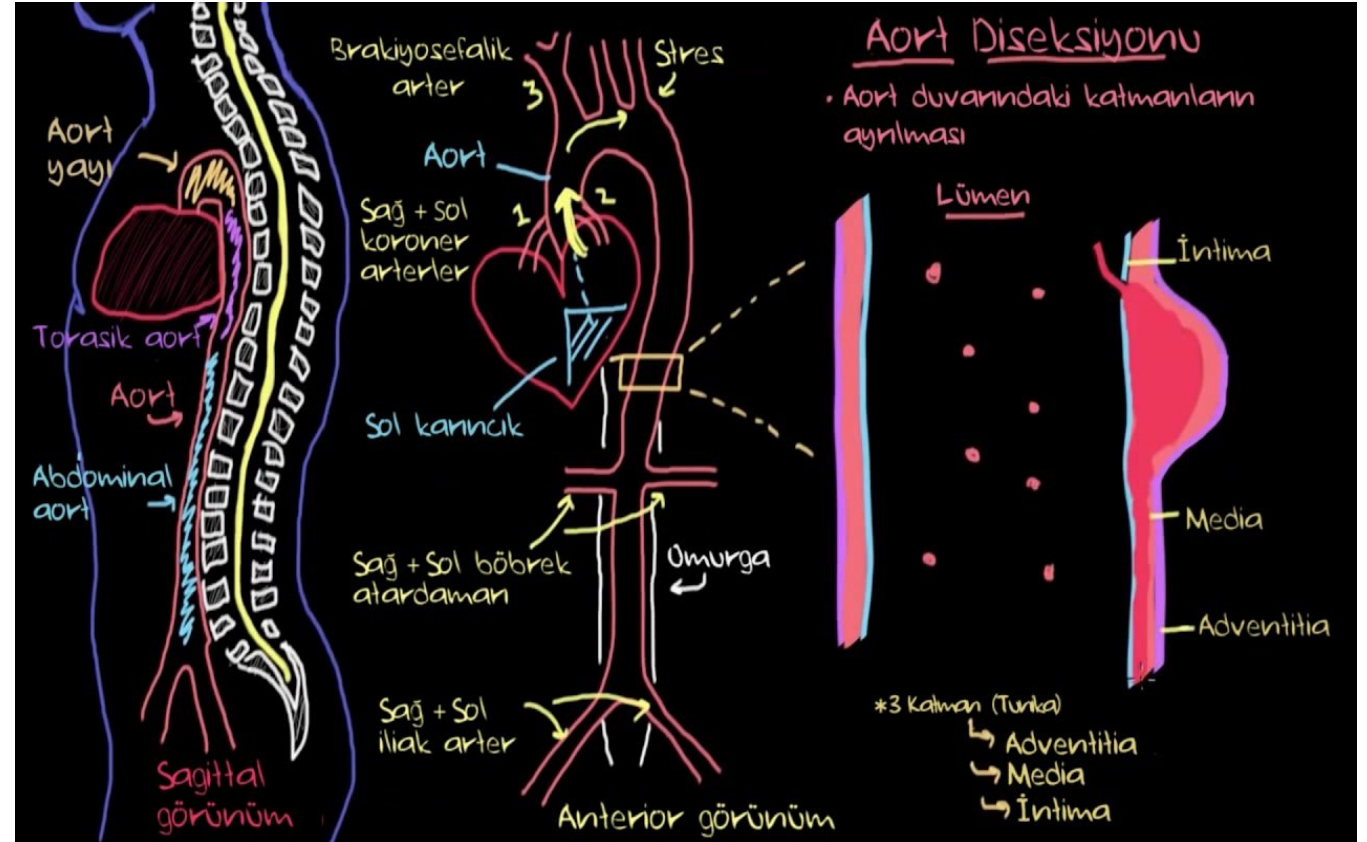 Aort
yayı
Torasik aort
Aort
Abdominal
aort
Sagittal
görünüm
Brakiyosefalik
arter
3
Stres
Aort
1
2
Sağ + Sol
koroner
arterler
Sol karıncık
Sağ + Sol böbrek
atardamarı
Omurga
Sağ + Sol
iliak arter
Anterior görünüm
Aort Diseksiyonu
• Aort duvarındaki katmanların
ayrılması
Lümen
İntima
Media
Adventitia
*3 Katman (Tunika)
Adventitia
Media
İntima